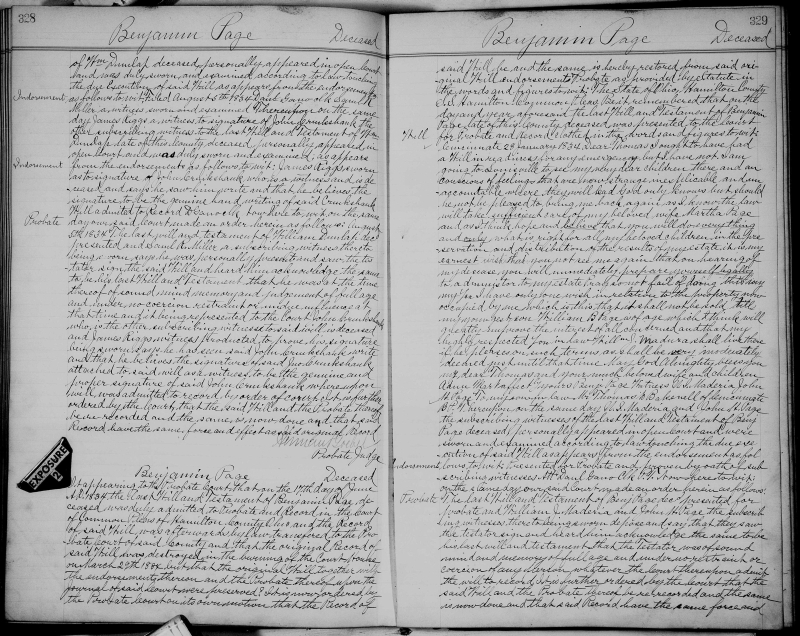 328
Benjamin Page Deceased
of Wm Dunlap deceased, personally appeared in open Court
and was duly sworn and examined according to law touching
the due Execution of said Will as appears from the endorsement
as follows to wit; Filed August 5th 1834 Dan Gano clk Saml R
Miller a witness sworn & examined Thereupon on the same
day James Riggs a witness to signature of John Cruikshank the
other subscribing witness to the last Will and Testament of Wm
Dunlap late of this County, deceased, personally appeared in
open Court and was duly sworn and examined, as appears
Indorsement
from the endorsement as follows to wit: James Riggs sworn
as to signature of John Cruikshank who is a witness and is de
ceased and says he saw him write and that he believes the
signature to be the genuine hand writing of said Cruikshank
Will admitted to Record D. Gano clk
day
Probate
5th 1834. The last will and testament of William Dunlap decd
presented and Saml R Miller a subscribing witness there to
being sworn says he was personally present and saw the tes
tator sign the said Will and heard him acknowledge the same
to be his last Will and Testament that he was at the time
thereof of sound mind and memory and judgement of full age
and under no coercion or restraint
that time and it being represented to the Court John Cruikshank
who is the other subscribing witness to said will is deceased
and James Riggs witness produced to prove his signature
being sworn says he has seen said John Cruikshank write
and that he believes the signature of said Jno Cruikshank
attached to said will as a witness to be the genuine and
proper signature of said John Cruikshank whereupon
will was admitted to record by order of court & it is further
ordered by the Court that the said Will and the Probate thereof
be re recorded and the same is now done and that said
Record have the same force and effect as said original Record
Probate Judge
EXPOSURE
Benjamin Page Deceased
It appearing to the Probate Court that on the 17th day of June
A.D. 1834, the last Will and Testament of Benj Page, de
ceased was duly admitted to Probate and Record in the Court
of Common Pleas of Hamilton County Ohio and the Record
of said Will was afterwards by law transferred to the Pro
bate Court of said County and that the original Record of
said Will was destroyed in the burning of the Court House
on March 29th 1884 but that the original Will together with
the endorsements thereon and the Probate thereof upon the
journal of said Court were preserved; It is now ordered by
the Probate Court on its own motion that the Record of
329
Benjamin Page Deceased
said Will, be and the same is hereby restored from said ori
ginal Will endorsements & Probate as provided by statute in
the words and figures to wit; The State of Ohio, Hamilton County
SS, Hamilton Common Pleas, Be it remembered that on the
day and year aforesaid the last Will and Testament of Benjamin
Page late of this County, deceased, was presented to the Court
for Probate and Record & other in the words and figures to wit:
Will
Cincinnati 28 January 1834 Dear Thomas I ought to have had
a Will in readiness for any emergency but I have not. I am
going to Louisville to see my only dear children there and am
conscious of feelings that are more strange indescribable and un
accountable where they will lead God only knows but should
he not be pleased to bring me back again, as I know the law
will take sufficient care of my beloved wife Martha Page
and as I think, hope and believe that you will do every thing
and only what is right for all my beloved children, in the pre
servation and distribution of the residue of my estate it is my
earnest wish that you not see me again that on hearing of
my decease, you will immediately prepare yourself legally
to administer to my estate
I have only one wish in relation to the property now
occupied by me, which is this that it shall not be sold till
my youngest son William B Page is of age which I think will
greatly improve the interest of all concerned and that my
highly respected son in law Will R. Madeira shall live there
if he pleases on such terms as shall be very moderately
deemed just until that time. May God Almighty bless you
my dear Thomas and your much beloved wife and children
Adieu
Benj Page Witness W R Madeira John
H Page
Thomas G Bakewell of Cincinnati
Thereupon on the same day W R Madeira and John H Page
the subscribing witnesses of the last Will and Testament of Benj
Page decd personally appeared in open Court and were
sworn and examined according to law touching the due exe
cution of said Will as appears from the endorsement as fol
Indorsement
lows to wit: Presented for Probate and proven by oath of sub
scribing witnesses
on the same day our said Court made an order herein as follows:
Probate
The last Will and Testament of Benj Page decd presented for
Probate and William R Madeira and John H Page the subscrib
ing witnesses thereto being sworn depose and say that they saw
the testator sign and heard him acknowledge the same to be
his last will and testament that the testator was of sound
mind and memory of full age and under no restraint or
coercion of any person whatever the Court thereupon admit
the will to record, It is further ordered by the Court that the
said Will and the Probate thereof be re recorded and the same
is now done and that said Record have the same force and